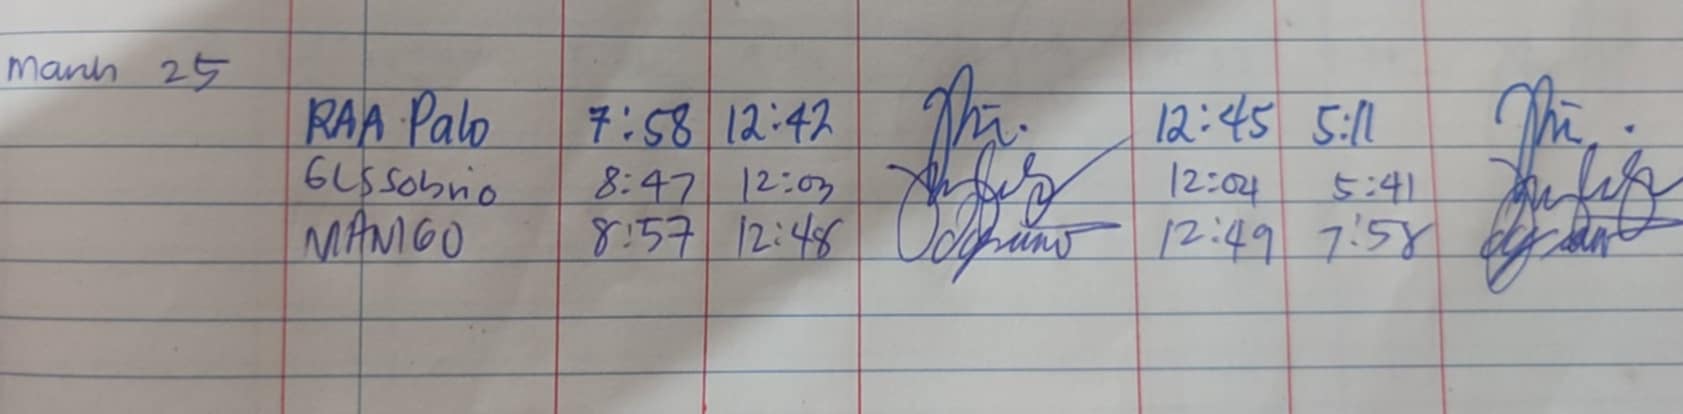 March 25
RAA Palo 7:58 12:42 12:45 5:11
GLSSobrio 8:47 12:03 12:04 5:41
MANGO 8:57 12:48 12:49 7:58